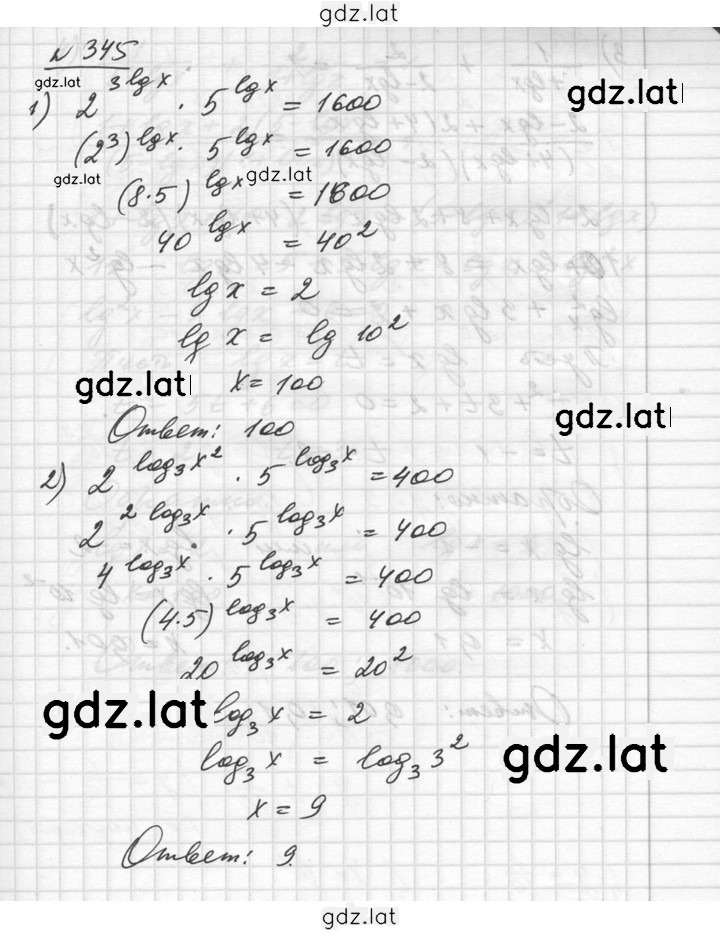 gdz.lat
№ 345
gdz.lat
1) 2^(3 lg x) · 5^(lg x) = 1600
gdz.lat
(2^3)^(lg x) · 5^(lg x) = 1600
gdz.lat
gdz.lat
(8·5)^(lg x) = 1600
40^(lg x) = 40^2
lg x = 2
lg x = lg 10^2
gdz.lat
x = 100
gdz.lat
Ответ: 100
2) 2^(log₃x^2) · 5^(log₃x) = 400
2^(2 log₃x) · 5^(log₃x) = 400
4^(log₃x) · 5^(log₃x) = 400
(4·5)^(log₃x) = 400
20^(log₃x) = 20^2
gdz.lat
log₃ x = 2
gdz.lat
log₃ x = log₃ 3^2
x = 9
Ответ: 9.
gdz.lat